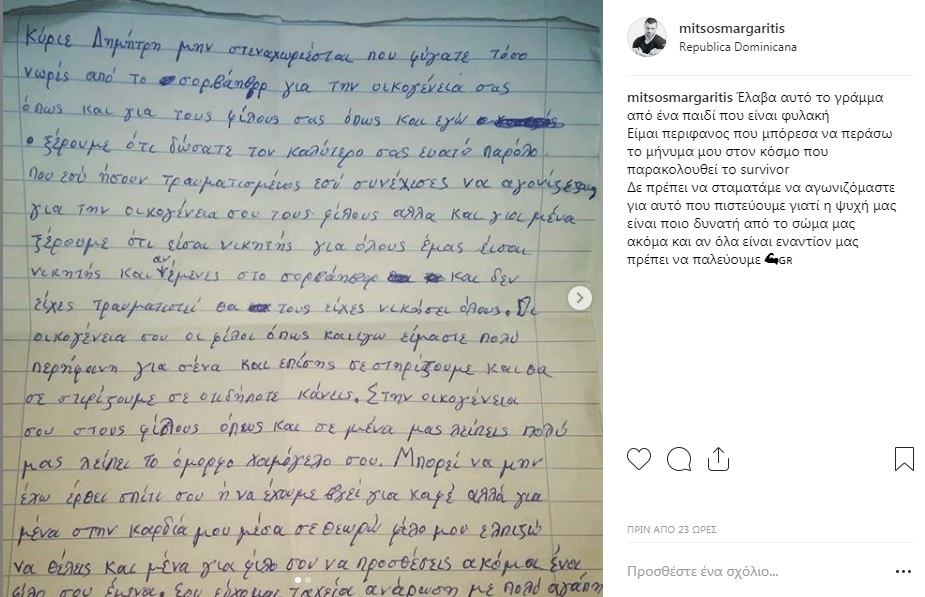 Κύριε Δημήτρη μην στεναχωριέσται που φύγατε τόσο
νωρίς από το σορβάηβορ για την οικογένεια σας
όπως και για τους φίλους σας όπως και εγώ
ξέρουμε ότι δώσατε τον καλύτερο σας ευατό παρόλο
που εσύ ήσουν τραυματισμένως εσύ συνέχισες να
για την οικογένεια σου τους φίλους αλλα και για μένα
ξέρουμε ότι είσαι νικητής για όλους έμας είσαι
νικητής και αν έμενες στο σορβάηβορ και δεν
είχες τραυματιστεί θα τους είχες νικήσει όλους. Οι
οικογένεια σου οι φίλοι όπως και εγω είμαστε πολύ
περήφανη για σένα και επίσης σε στηρίζουμε και θα
σε στιρίζουμε σε οτιδήποτε κάνεις. Στην οικογένεια
σου στους φίλους όπως και σε μένα μας λείπεις πολύ
μας λείπει το όμορφο χαμόγελο σου. Μπορεί να μην
έχω έρθει σπίτι σου ή να έχουμε βγεί για καφέ αλλά για
μένα στην καρδιά μου μέσα σε θεωρώ φίλο μου ελπίζω
να θέλεις και μένα για φίλο σου να προσθέσεις ακόμα ένα
φίλο σου έμενα. Σου εύχομαι ταχεία ανάρωση με πολύ αγάπη
mitsosmargaritis
Republica Dominicana
mitsosmargaritis Έλαβα αυτό το γράμμα
από ένα παιδί που είναι φυλακή
Είμαι περιφανος που μπόρεσα να περάσω
το μήνυμα μου στον κόσμο που
παρακολουθεί το survivor
Δε πρέπει να σταματάμε να αγωνιζόμαστε
για αυτό που πιστεύουμε γιατί η ψυχή μας
είναι ποιο δυνατή από το σώμα μας
ακόμα και αν όλα είναι εναντίον μας
πρέπει να παλεύουμε 💪GR
ΠΡΙΝ ΑΠΌ 23 ΏΡΕΣ
Προσθέστε ένα σχόλιο...